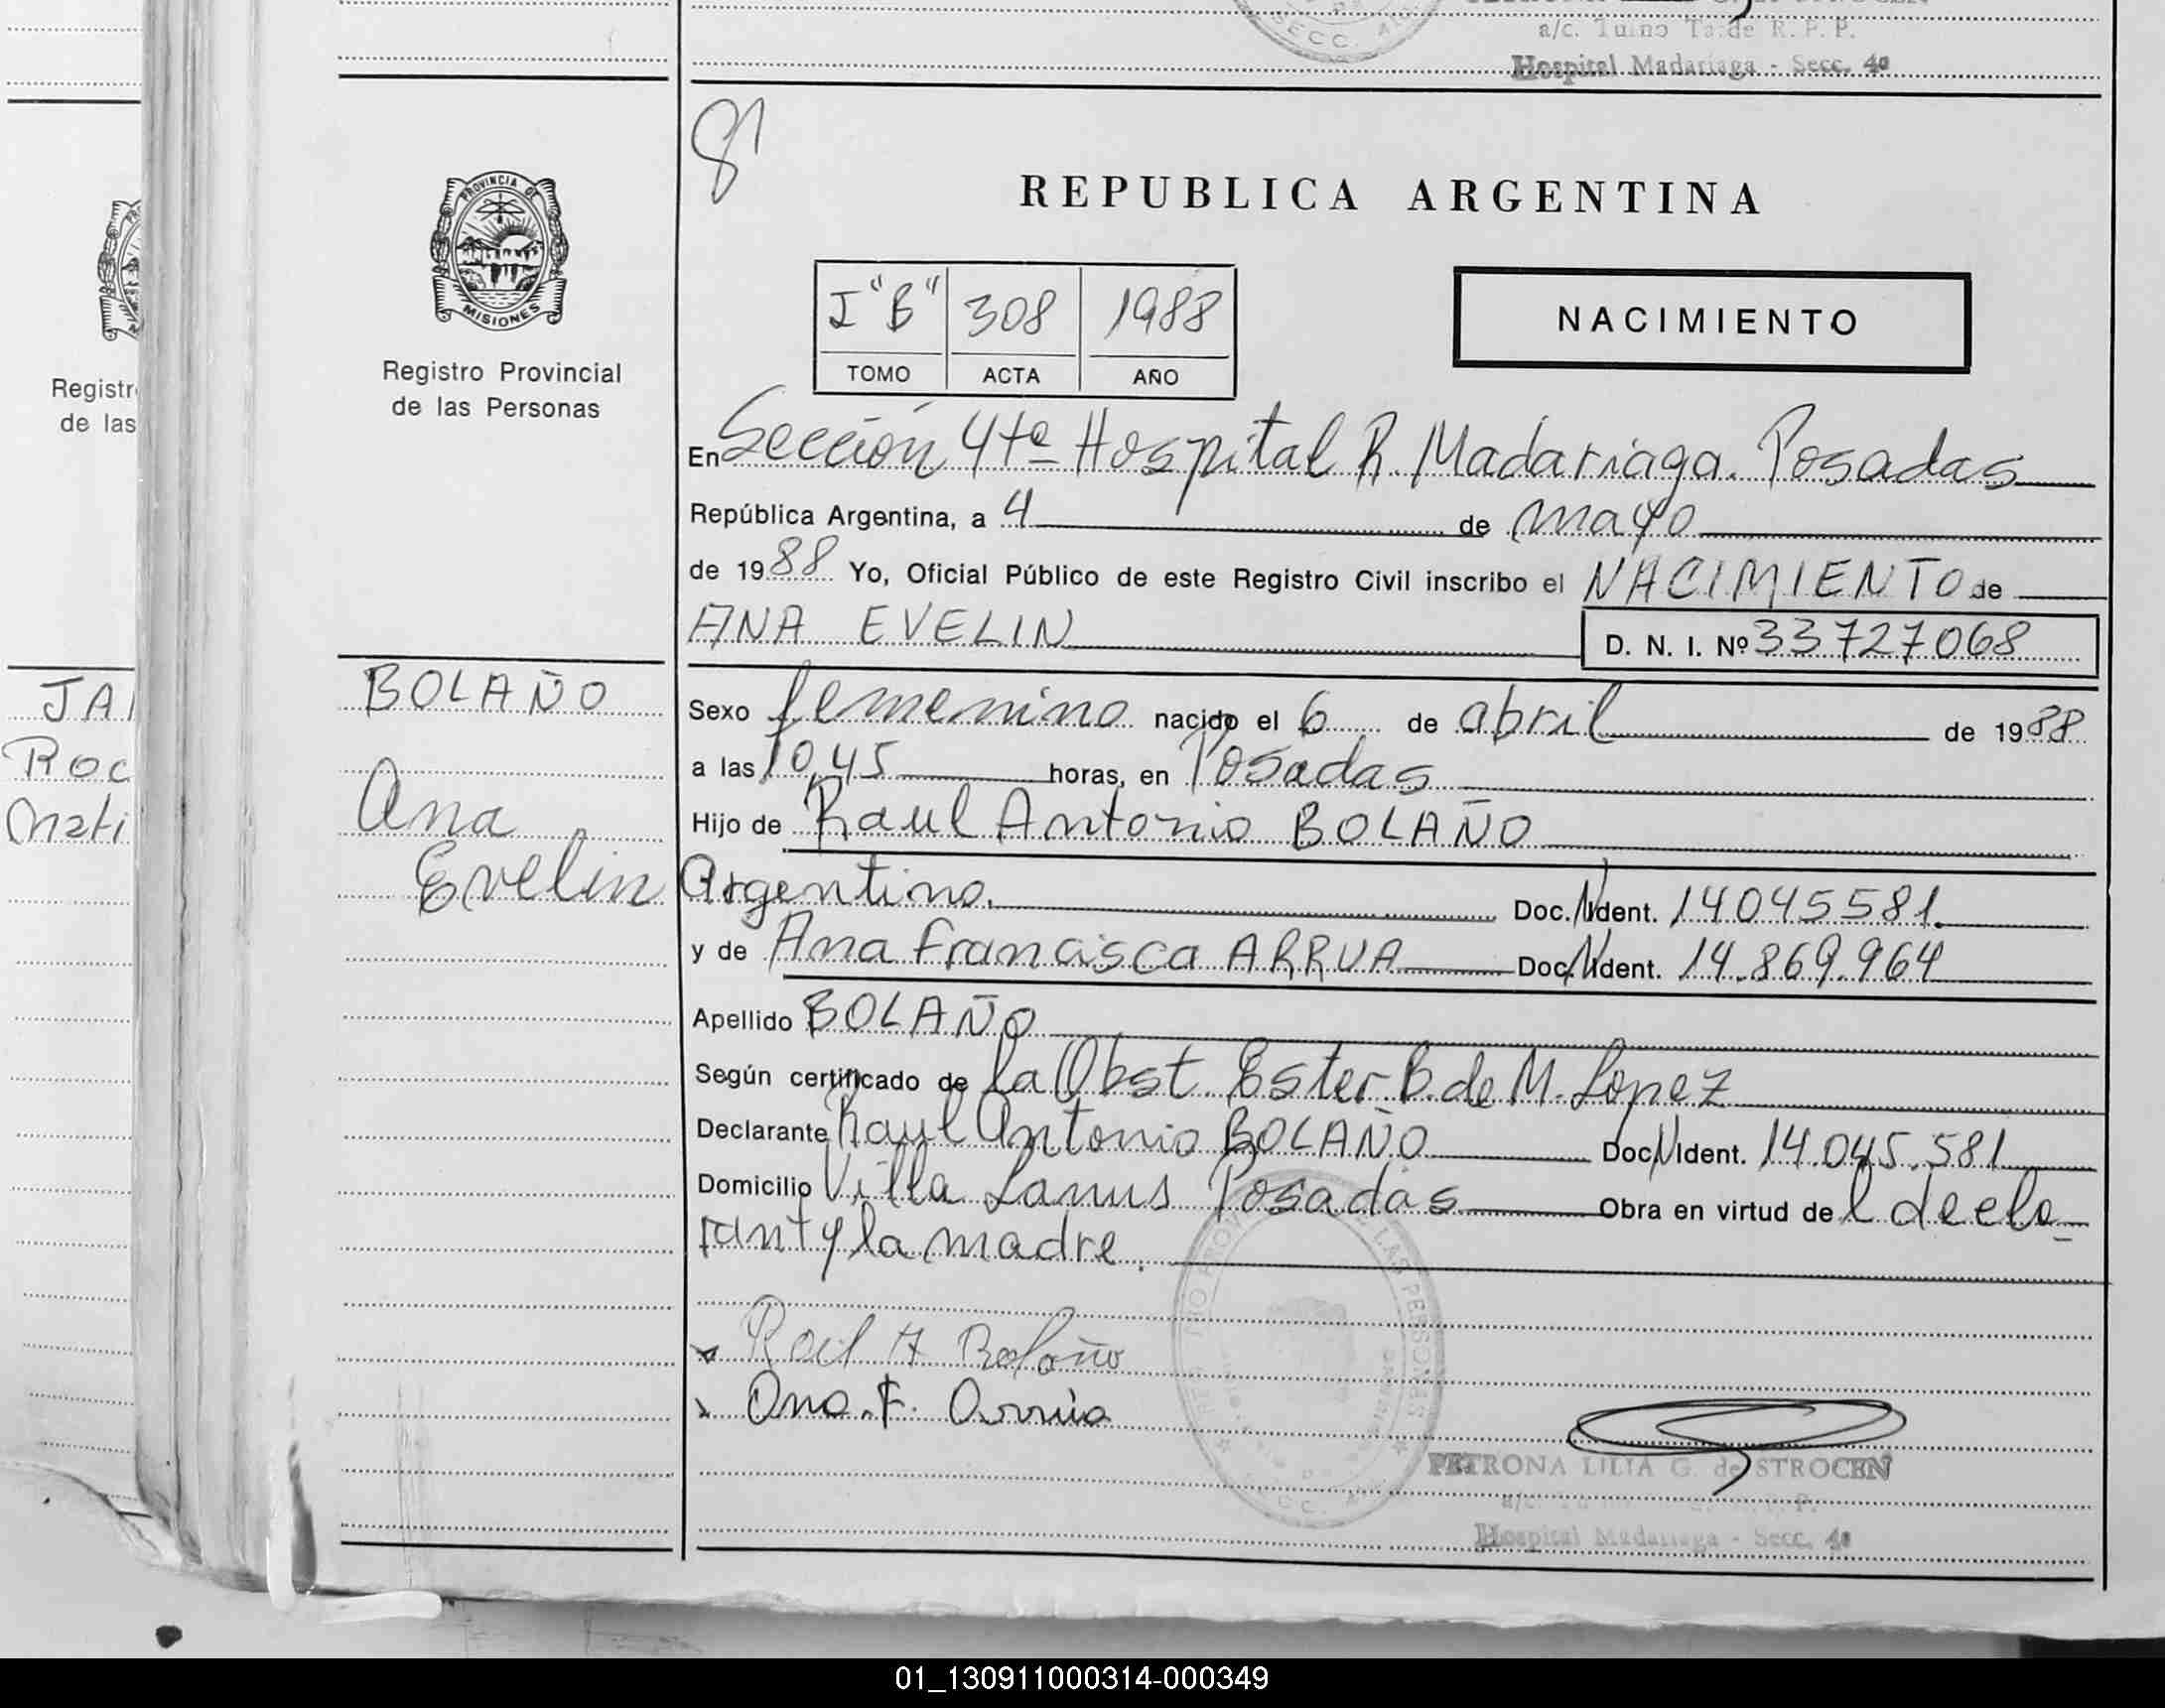 a/c. Turno Tarde R. P. P.
Hospital Madariaga - Secc. 4a
8
PROVINCIA DE
MISIONES
Registro Provincial
de las Personas
REPUBLICA ARGENTINA
I "B" 308 1988
TOMO ACTA AÑO
NACIMIENTO
En Sección 4ta Hospital R. Madariaga. Posadas
República Argentina, a 4 de mayo
de 1988 Yo, Oficial Público de este Registro Civil inscribo el NACIMIENTO de
ANA EVELIN
D. N. I. Nº 33727068
Sexo femenino nacido el 6 de abril de 1988
a las 10,45 horas, en Posadas
Hijo de Raul Antonio BOLAÑO
Argentino. Doc. Ident. 14045581.
y de Ana Francisca ARRUA Doc. Ident. 14.869.964
Apellido BOLAÑO
Según certificado de la Obst. Ester B. de M. Lopez
Declarante Raul Antonio BOLAÑO Doc. Ident. 14.045.581
Domicilio Villa Lanus Posadas Obra en virtud de l decla
rant y la madre.
Raul A Bolaño
Ana F. Arrúa
PETRONA LILIA G. de STROCEN
Hospital Madariaga - Secc. 4a
BOLAÑO
Ana
Evelin
Registr
de las
JA
Roc
Mati
01_130911000314-000349